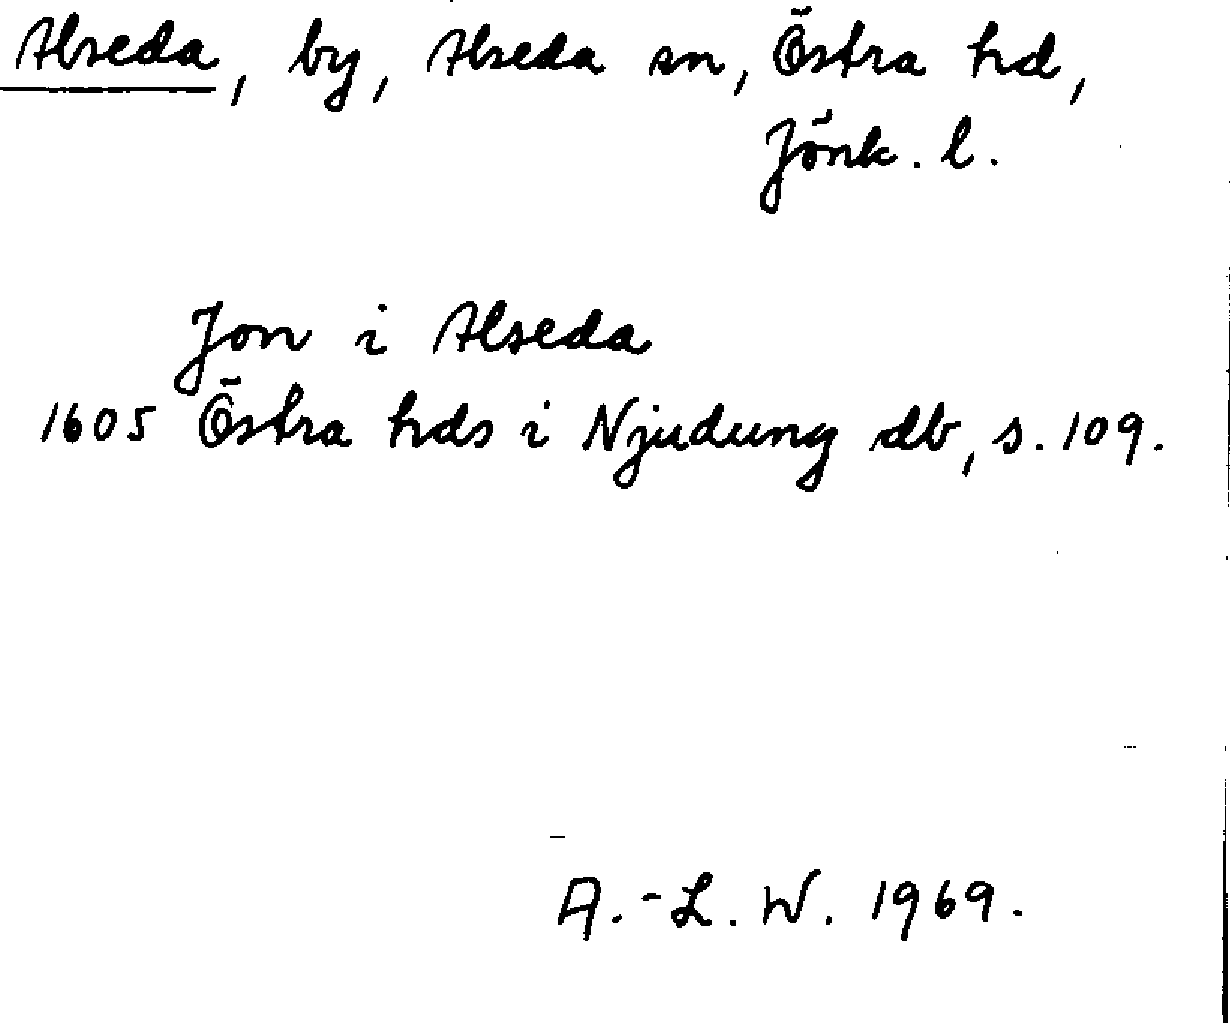 Alseda, by, Alseda sn, Östra hd,
Jönk. l.
Jon i Alseda
1605 Östra hds i Njudung db, s. 109.
A.-L. W. 1969.